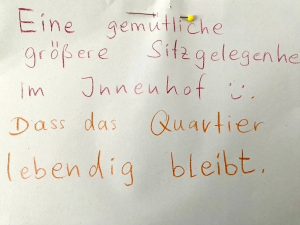 Eine gemütliche
größere Sitzgelegenhe
im Innenhof ü.
Dass das Quartier
lebendig bleibt.